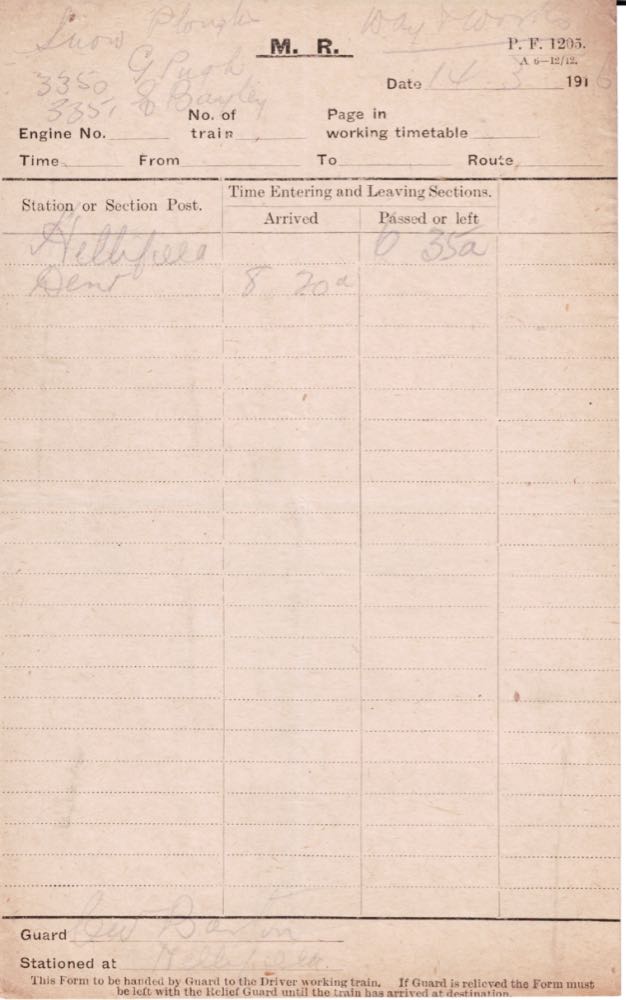 Snow Plough
Way & Works
M. R.
P. F. 1205.
A 6—12/12.
G Pugh
3350
Date 14 3 1916
3351 & Bayley
No. of
Page in
Engine No. train working timetable
Time From To Route
Station or Section Post.
Time Entering and Leaving Sections.
Arrived Passed or left
Hellifield 6 35a
Dent 8 20a
Guard Barton
Stationed at Hellifield
This Form to be handed by Guard to the Driver working train. If Guard is relieved the Form must
be left with the Relief Guard until the train has arrived at destination.